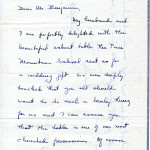 Dear Mr. Benjamin,
My husband and
I are perfectly delighted with the
beautiful walnut table the Pine
Mountain School sent us for
a wedding gift. We are deeply
touched that you all should
want to do such a lovely thing
for us and I can assure you
that this table is one of our most
cherished possessions. Of course